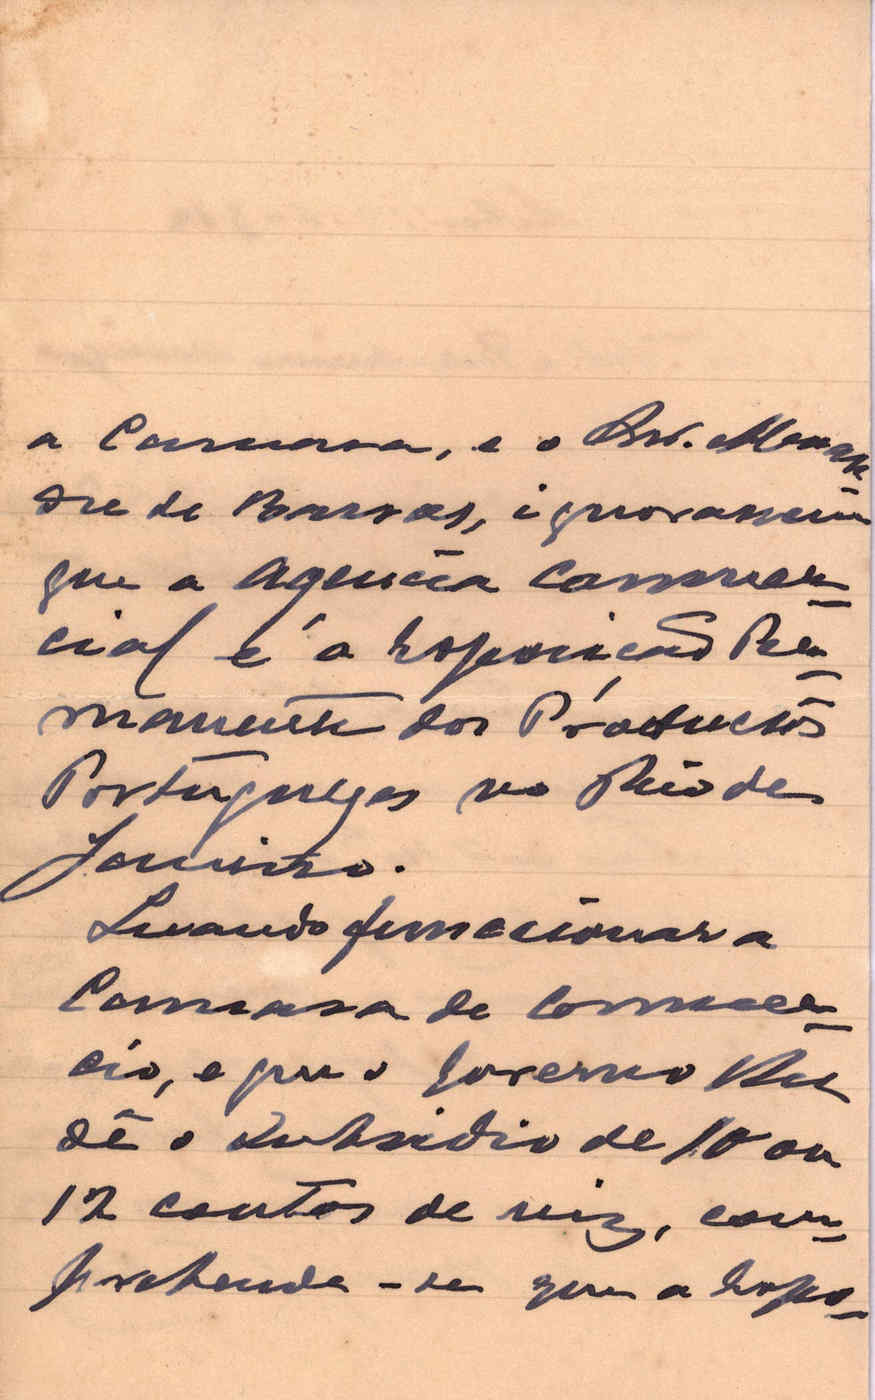 a Camara, e o Snr.
de Barros, ignorassem
que a Agencia Commer-
cial e á Exposição Per-
manente dos Productos
Portuguezes no Rio de
Janeiro.
Quando funccionar a
Camara de Commer-
cio, e que o Governo lhe
dê o subsidio de 10 ou
12 contos de reis, com-
prehende-se que a Expo-